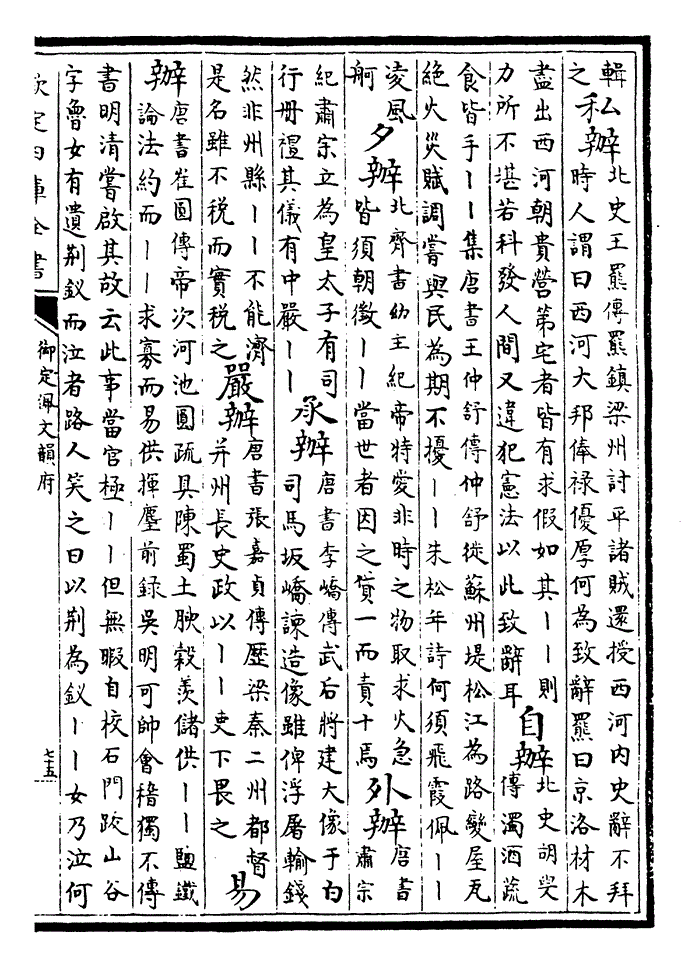 輯私辦北史王羆傳羆鎮梁州討平諸賊還授西河內史辭不拜
之時人謂曰西河大邦俸祿優厚何為致辭羆曰京洛材木
盡出西河朝貴營第宅者皆有求假如其丨丨則
力所不堪若科發人間又違犯憲法以此致辭耳
自辦北史胡叟
傳濁酒蔬
食皆手丨丨集唐書王仲舒傳仲舒徙蘇州堤松江為路變屋瓦
絕火災賦調嘗與民為期不擾丨丨朱松年詩何須飛霞佩丨丨
凌風
舸
夕辦北齊書幼主紀帝特愛非時之物取求火急
皆須朝徵丨丨當世者因之貸一而責十焉
外辦唐書
肅宗
紀肅宗立為皇太子有司
行冊禮其儀有中嚴丨丨
承辦唐書李嶠傳武后將建大像于白
司馬坂嶠諫造像雖俾浮屠輸錢
然非州縣丨丨不能濟
是名雖不稅而實稅之
嚴辦唐書張嘉貞傳歷梁秦二州都督
并州長史政以丨丨吏下畏之
易
辦唐書崔圓傳帝次河池圓疏具陳蜀土腴穀羨儲供丨丨鹽鐵
論法約而丨丨求寡而易供揮麈前錄吳明可帥會稽獨不傳
書明清嘗啟其故云此事當官極丨丨但無暇自校石門跋山谷
字魯女有遺荊釵而泣者路人笑之曰以荊為釵丨丨女乃泣何
欽定四庫全書
御定佩文韻府
七十五